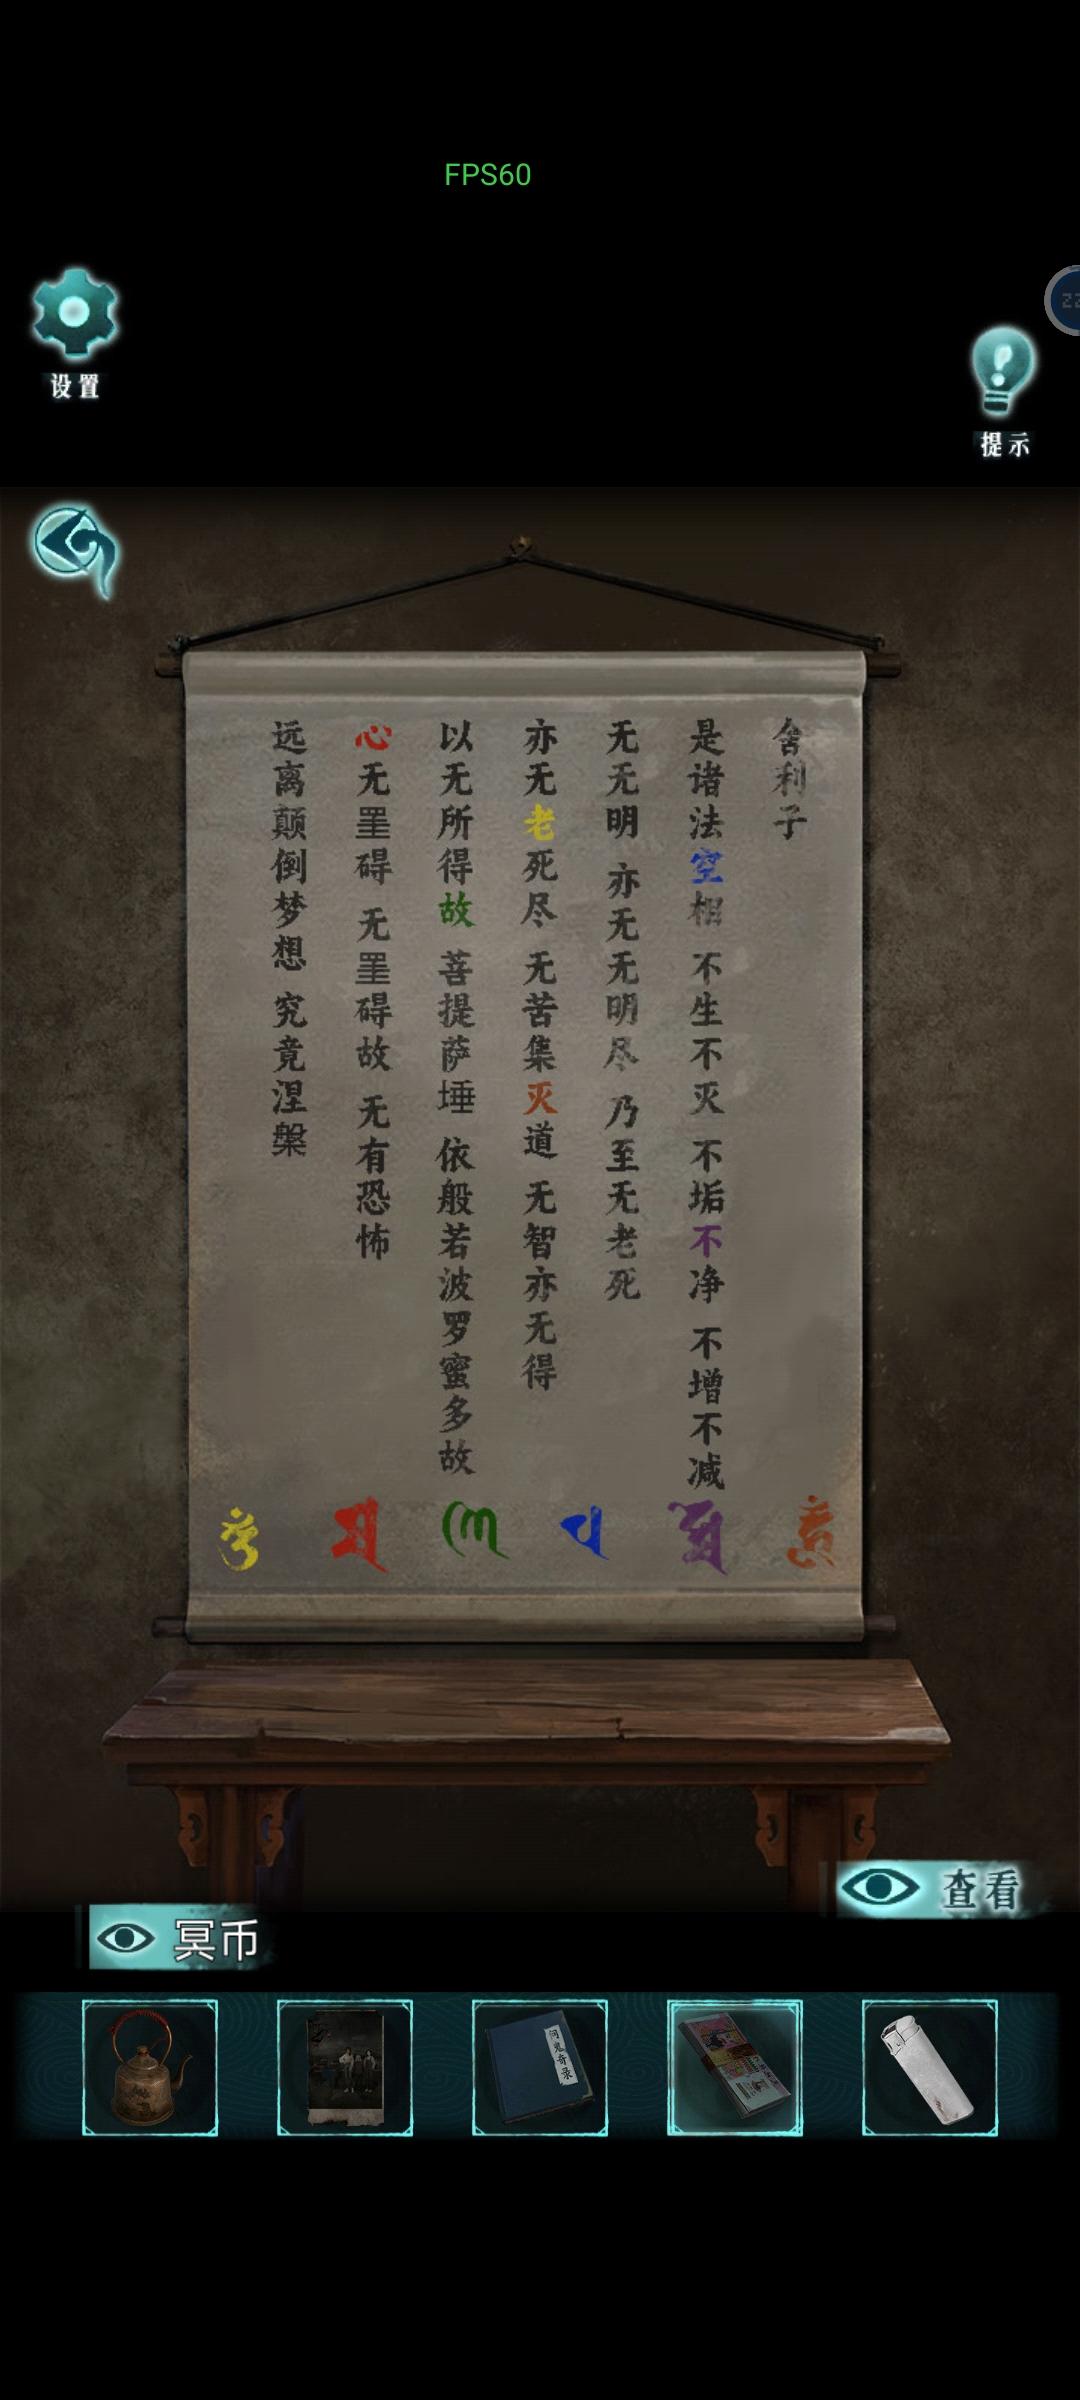 FPS60
设置
提示
舍利子
是诸法空相 不生不灭 不垢不净 不增不减
无无明 亦无无明尽 乃至无老死
亦无老死尽 无苦集灭道 无智亦无得
以无所得故 菩提萨埵 依般若波罗蜜多故
心无罣碍 无罣碍故 无有恐怖
远离颠倒梦想 究竟涅槃
查看
冥币
问鬼奇录